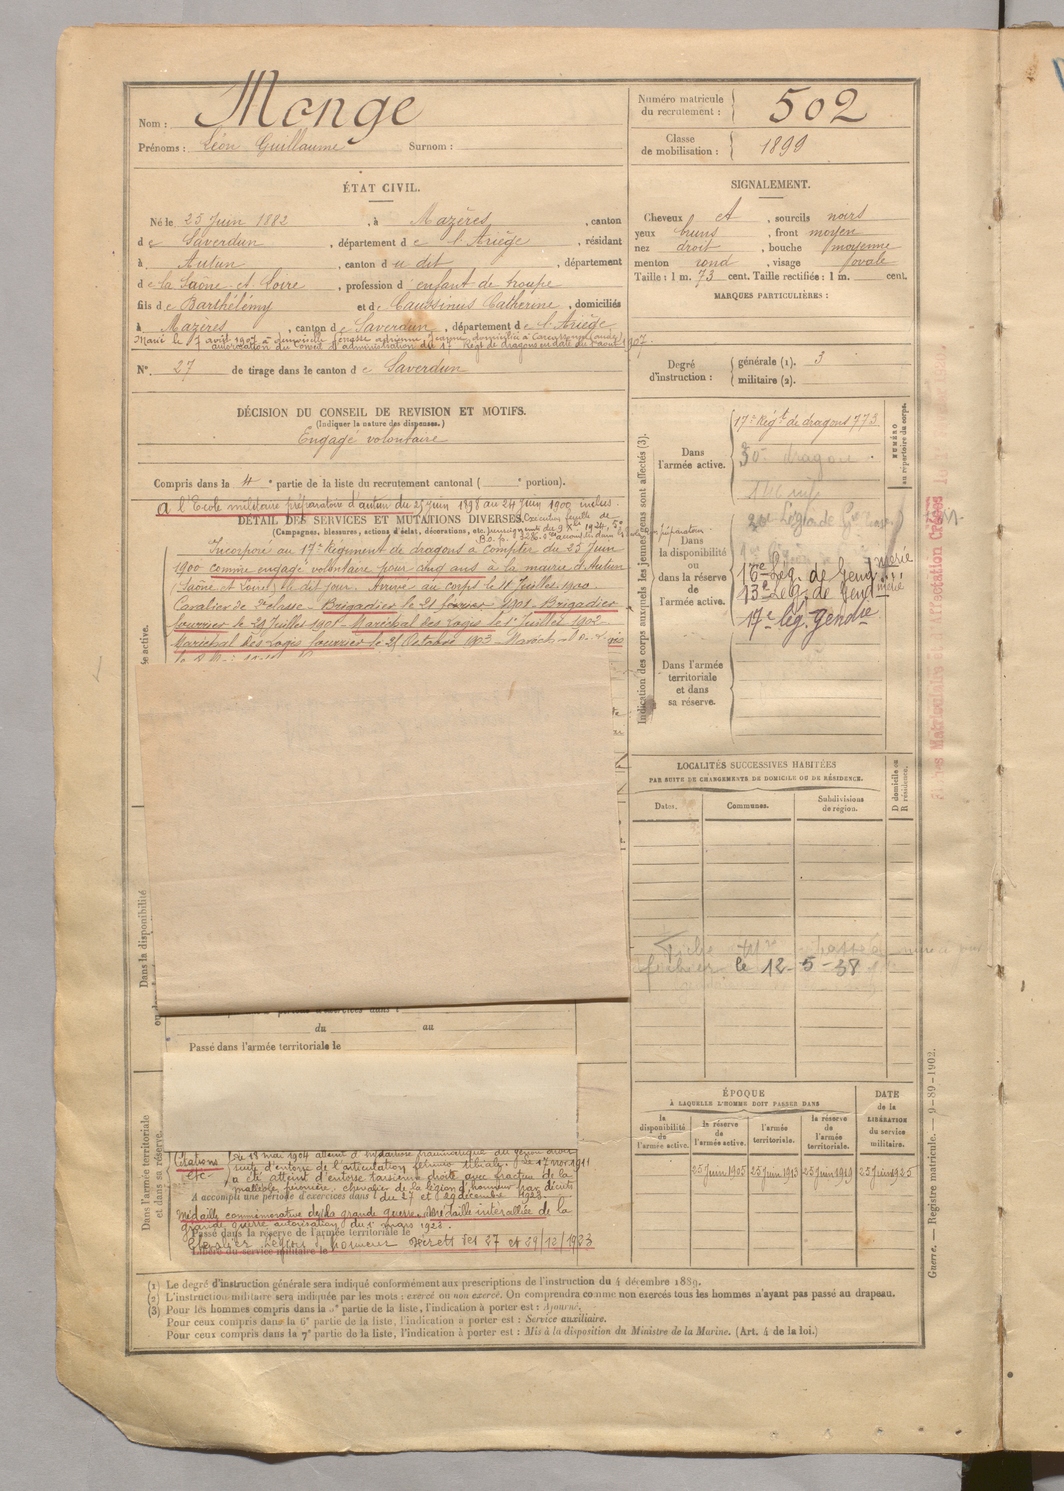 Nom : Monge
Prénoms : Léon Guillaume Surnom :
Numéro matricule du recrutement : 502
Classe de mobilisation : 1899
ÉTAT CIVIL.
Né le 25 Juin 1882, à Mazères, canton
de Saverdun, département de l'Ariège, résidant
à Autun, canton du dit, département
de la Saône-et-Loire, profession d'enfant de troupe
fils de Barthélémy et de Caussinus Catherine, domiciliés
à Mazères, canton de Saverdun, département de l'Ariège
Marié le 7 avril
autorisation du Conseil d'administration du 17e Régt de dragons en date du 1907.
N° 27 de tirage dans le canton de Saverdun
SIGNALEMENT.
Cheveux et, sourcils noirs
yeux bruns, front moyen
nez droit, bouche moyenne
menton rond, visage ovale
Taille : 1 m. 73 cent. Taille rectifiée : 1 m. cent.
MARQUES PARTICULIÈRES :
Degré d'instruction : générale (1). 3
militaire (2).
DÉCISION DU CONSEIL DE REVISION ET MOTIFS.
(Indiquer la nature des dispenses.)
Engagé volontaire
Compris dans la 4e partie de la liste du recrutement cantonal ( portion).
A l'Ecole militaire préparatoire d'autun du 25 juin 1898 au 24 juin 1900 inclus.
DÉTAIL DES SERVICES ET MUTATIONS DIVERSES
(Campagnes, blessures, actions d'éclat, décorations, etc.)
Incorporé au 17e Régiment de dragons à compter du 25 Juin
1900 comme engagé volontaire pour cinq ans à la mairie d'Autun
(Saône et Loire) le dit jour. Arrivé au corps le 11 Juillet 1900.
Cavalier de 2e classe - Brigadier le 21 février 1901 - Brigadier
fourrier le 29 Juillet 1901 - Maréchal des Logis le 1er Juillet 1902 -
Maréchal des Logis fourrier le 21 Octobre 1903 -
Indication des corps auxquels les jeunes gens sont affectés (3).
NUMÉRO au répertoire du corps.
Dans l'armée active.
17e Régt de dragons 773
30e dragons
Dans la disponibilité ou dans la réserve de l'armée active.
16e Lég. de Gend.
13e Lég. de Gend.
17e lég. Gendie
Dans l'armée territoriale et dans sa réserve.
LOCALITÉS SUCCESSIVES HABITÉES
PAR SUITE DE CHANGEMENTS DE DOMICILE OU DE RÉSIDENCE.
Dates. Communes. Subdivisions de région. D domicile ou R résidence.
Fiche passé
fichier le 12-5-38
Dans la disponibilité
du au
Passé dans l'armée territoriale le
Dans l'armée territoriale et dans sa réserve.
Citations etc. Le 18 mai 1904 atteint d'hydarthrose traumatique du genou avec
suite d'entorse de l'articulation fémuro tibiale. Le 17 nov 1911
a été atteint d'entorse tarsienne droite avec fracture de la
malléole péronière. chevalier de la légion d'honneur par décrets
A accompli une période d'exercices dans l du 27 et 29 décembre 1923.
Médaille commémorative de la grande guerre. Médaille interalliée de la
grande guerre autorisation du 1er mars 1923.
Passé dans la réserve de l'armée territoriale le
Chevalier Légion d'honneur Décrets des 27 et 29/12/1923
Libéré du service militaire le
ÉPOQUE
À LAQUELLE L'HOMME DOIT PASSER DANS
la disponibilité de l'armée active. la réserve de l'armée active. l'armée territoriale. la réserve de l'armée territoriale. DATE de la LIBÉRATION du service militaire.
25 Juin 1905 25 Juin 1913 25 Juin 1919 25 Juin 1925
(1) Le degré d'instruction générale sera indiqué conformément aux prescriptions de l'instruction du 4 décembre 1889.
(2) L'instruction militaire sera indiquée par les mots : exercé ou non exercé. On comprendra comme non exercés tous les hommes n'ayant pas passé au drapeau.
(3) Pour les hommes compris dans la 5e partie de la liste, l'indication à porter est : Ajourné.
Pour ceux compris dans la 6e partie de la liste, l'indication à porter est : Service auxiliaire.
Pour ceux compris dans la 7e partie de la liste, l'indication à porter est : Mis à la disposition du Ministre de la Marine. (Art. 4 de la loi.)
Guerre. — Registre matricule. — 9-89-1902.